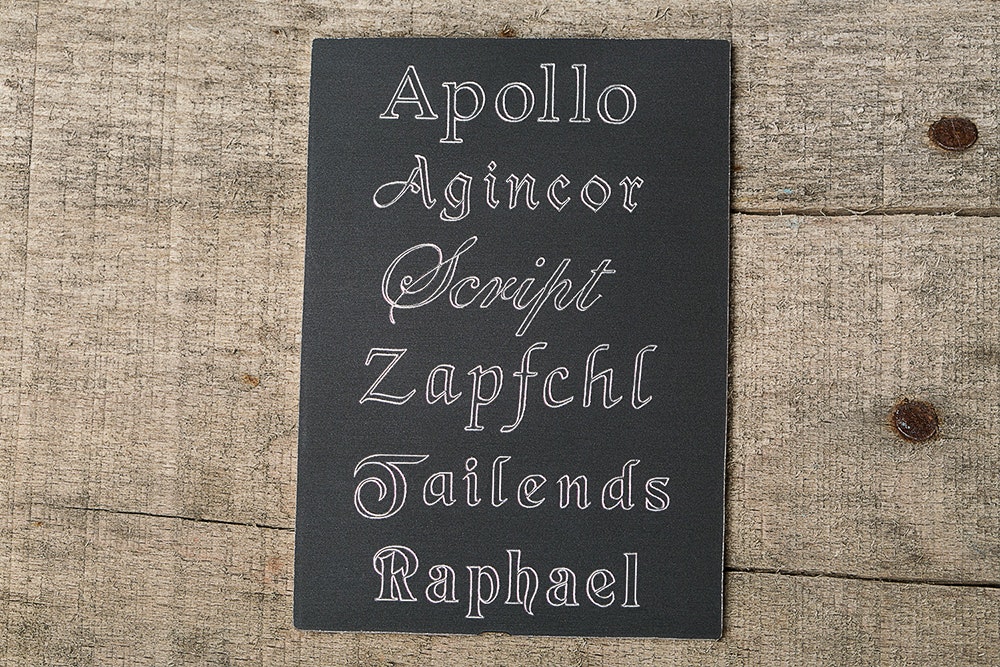 Apollo
Agincor
Script
Zapfchl
Tailends
Raphael